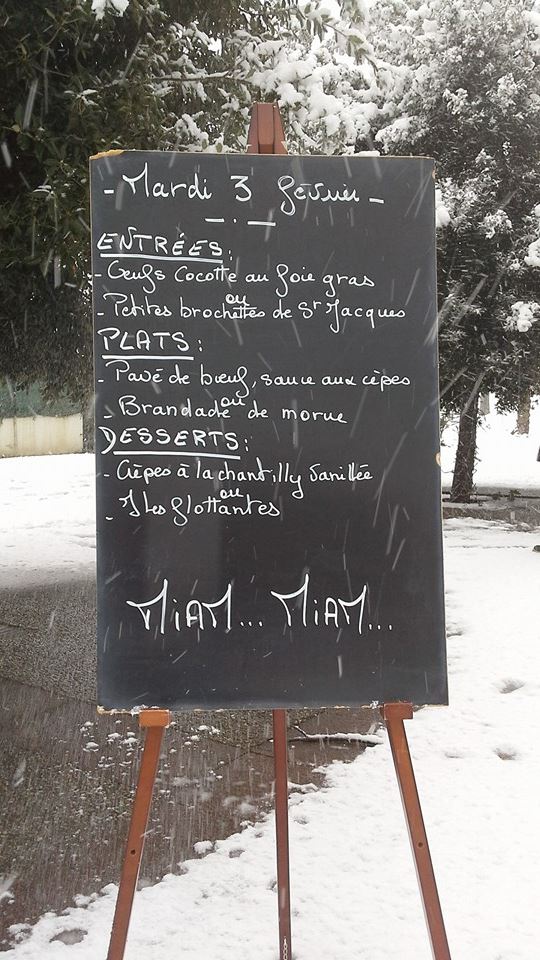 - Mardi 3 février -
- . -
ENTRÉES :
- Oeufs Cocotte au foie gras
ou
- Petites brochettes de St Jacques
PLATS :
- Pavé de bœuf, sauce aux cèpes
ou
- Brandade de morue
DESSERTS :
- Crêpes à la chantilly vanillée
ou
- Iles flottantes
MiAM... MiAM...